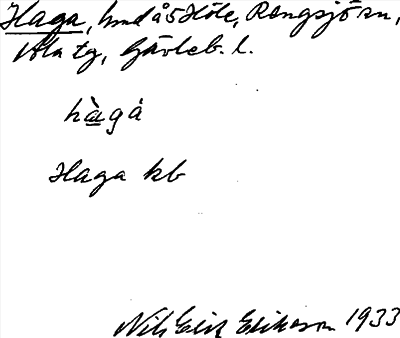 Haga, hmd å 5 Höle, Rengsjö sn,
Ala tg, Gävleb. l.
hàgå
Haga kb
Nils Erik Erikson 1933